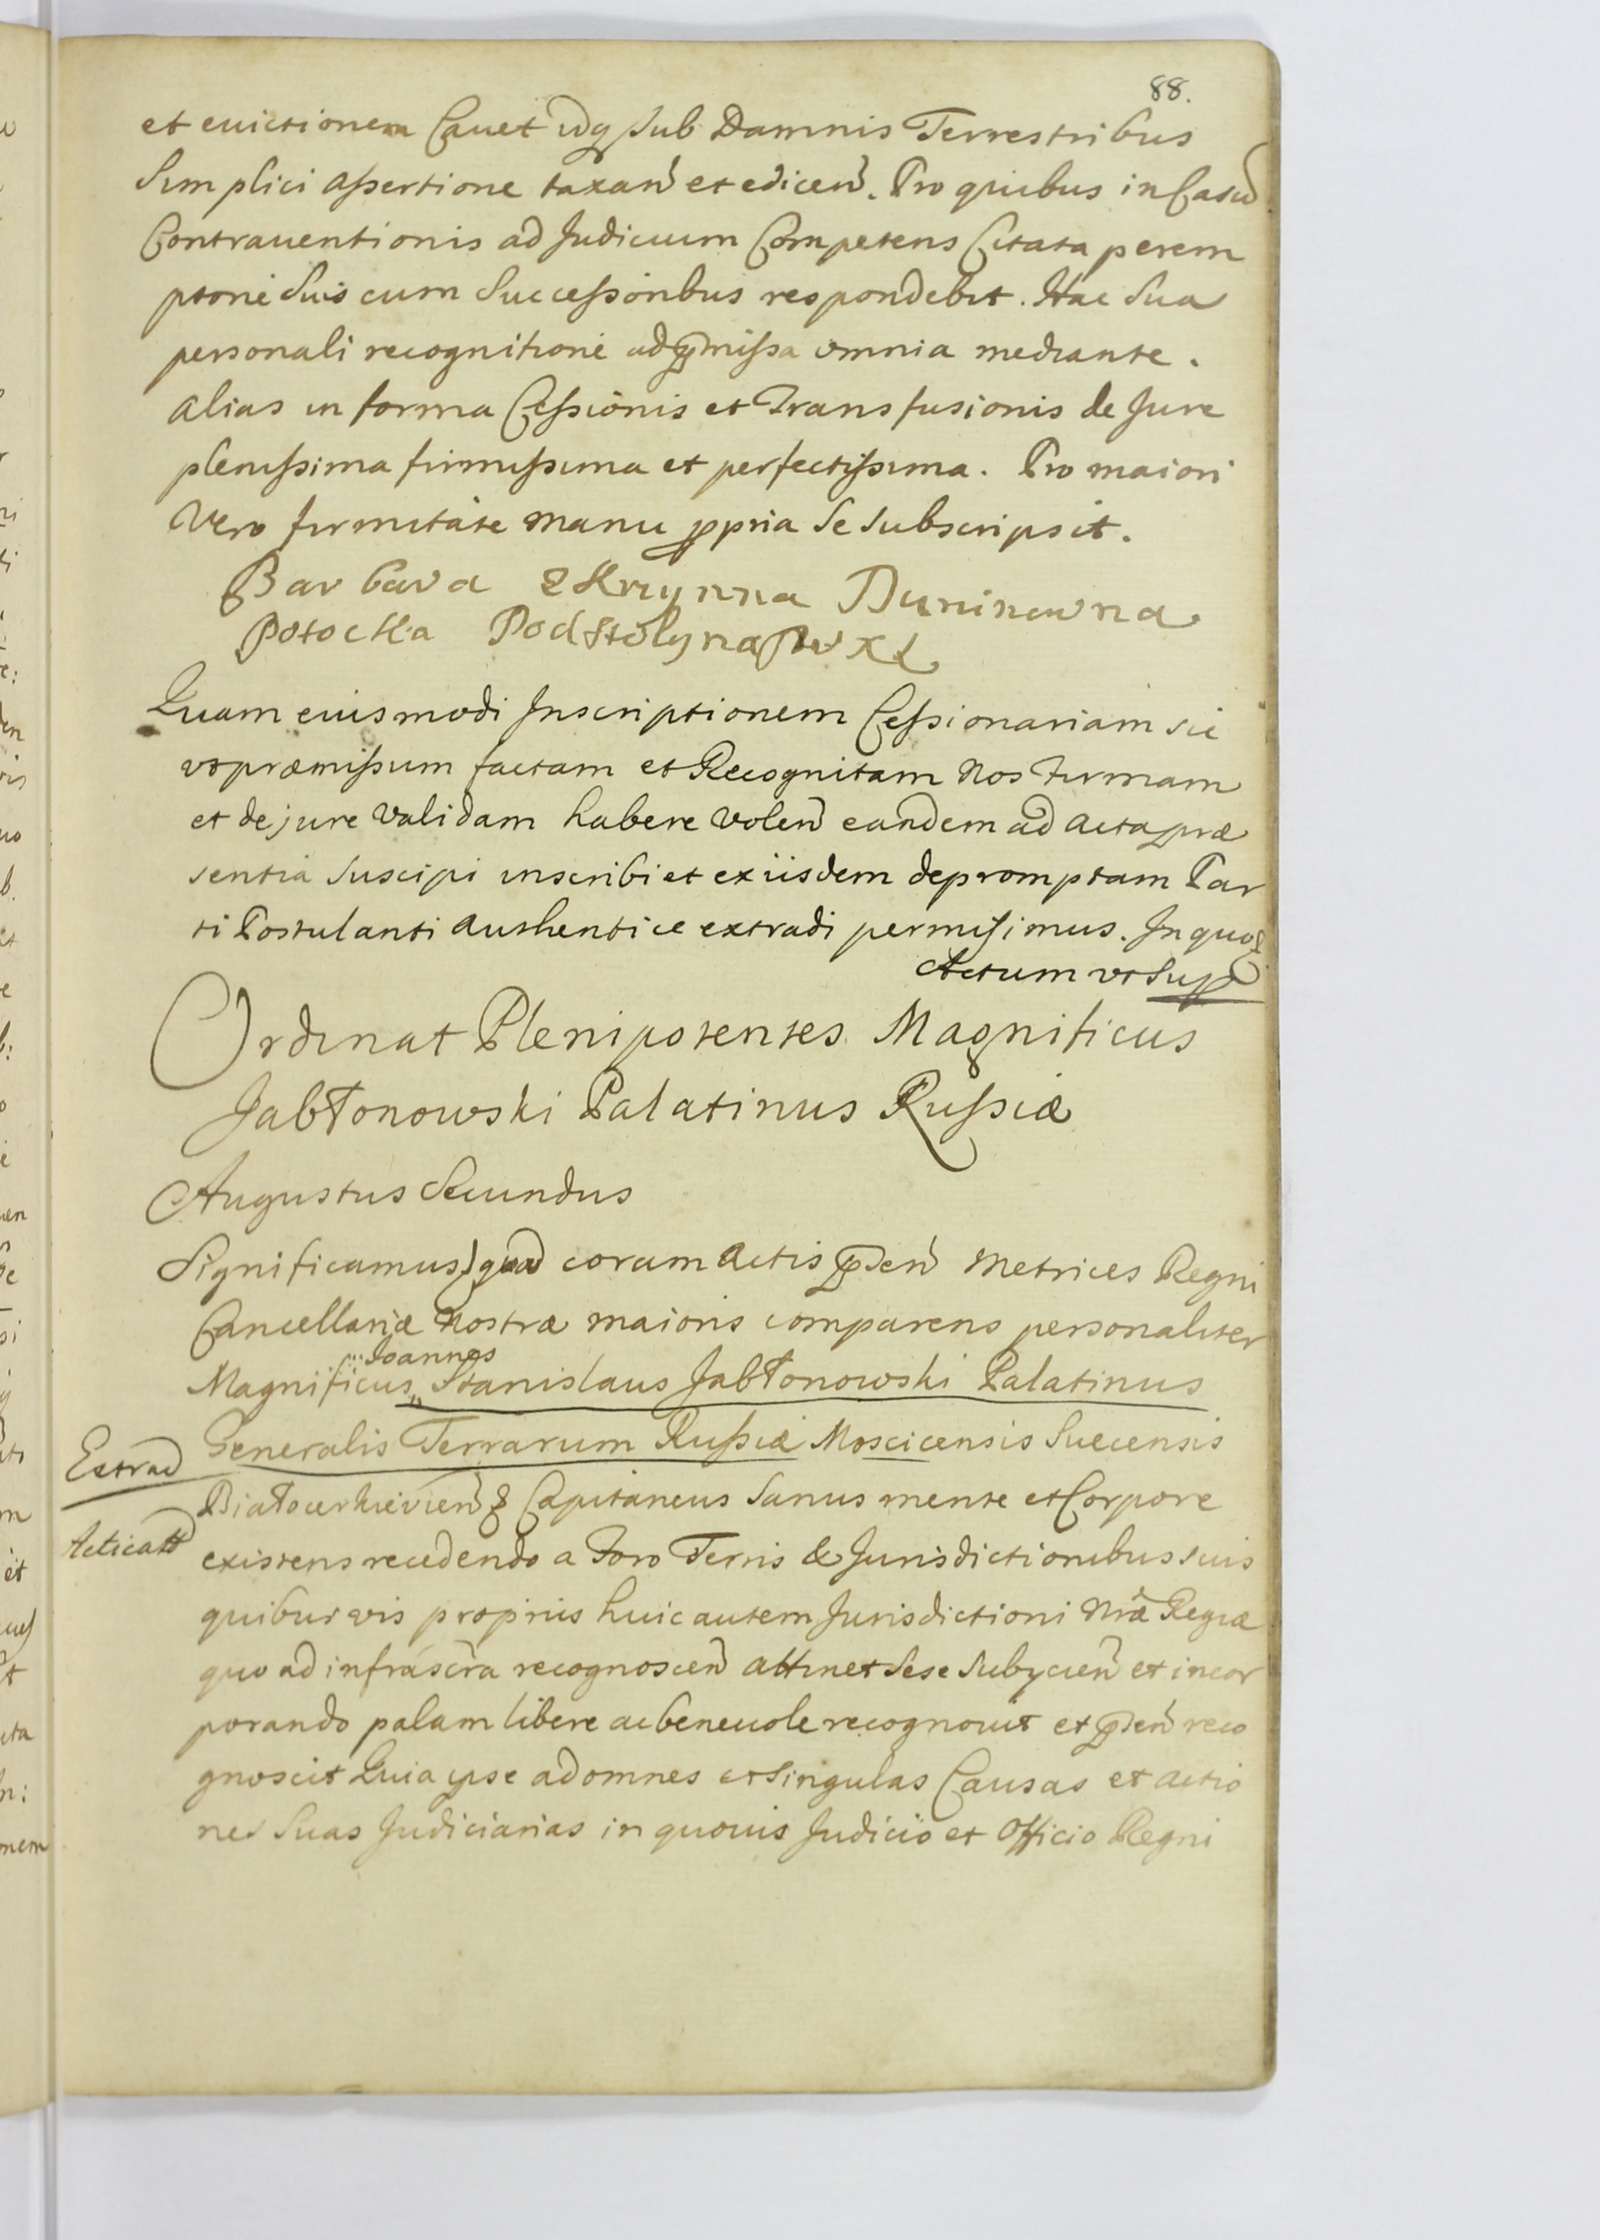 88.
et euictionem Cauet idq sub Damnis Terrestribus
Simplici assertione taxan et edicen. Pro quibus in Casu
Contrauentionis ad Judicium Competens Citata perem
ptorie suis cum Successoribus respondebit. Hac sua
personali recognitione ad pmissa omnia mediante.
alias in forma Cessionis et Transfusionis de Jure
plenissima firmissima et perfectissima. Pro maiori
Vero firmitate manu ppria se subscripsit.
Barbara z Skrzynna Duninowna
Potocka Podstolyna
Quam eiusmodi Inscriptionem Cessionariam sic
vt præmissum factam et Recognitam Nos Firmam
et de jure validam habere volen eandem ad acta præ
sentia suscipi inscribi et ex iisdem depromptam Par
ti Postulanti authentice extradi permisimus. In quo
Actum vt sup
Ordinat Plenipotentes Magnificus
Jabłonowski Palatinus Russiæ
Augustus Secundus
Significamus quod coram actis pden Metrices Regni
Cancellariæ Nostræ maioris comparens personaliter
Joannes
Magnificus Stanislaus Jabłonowski Palatinus
Generalis Terrarum Russiæ Moscicensis Suecensis
Extrad
Białocerkievien & Capitaneus sanus mente et Corpore
Acticatt
existens recedendo a Foro Terris & Jurisdictionibus suis
quibusvis proprijs huic autem Jurisdictioni Nræ Regiæ
quo ad infrascra recognoscen attinet sese subycien et incor
porando palam libere ac beneuole recognouit et pden reco
gnoscit Quia ipse ad omnes et singulas Causas et actio
nes suas Judiciarias in quouis Judicio et Officio Regni